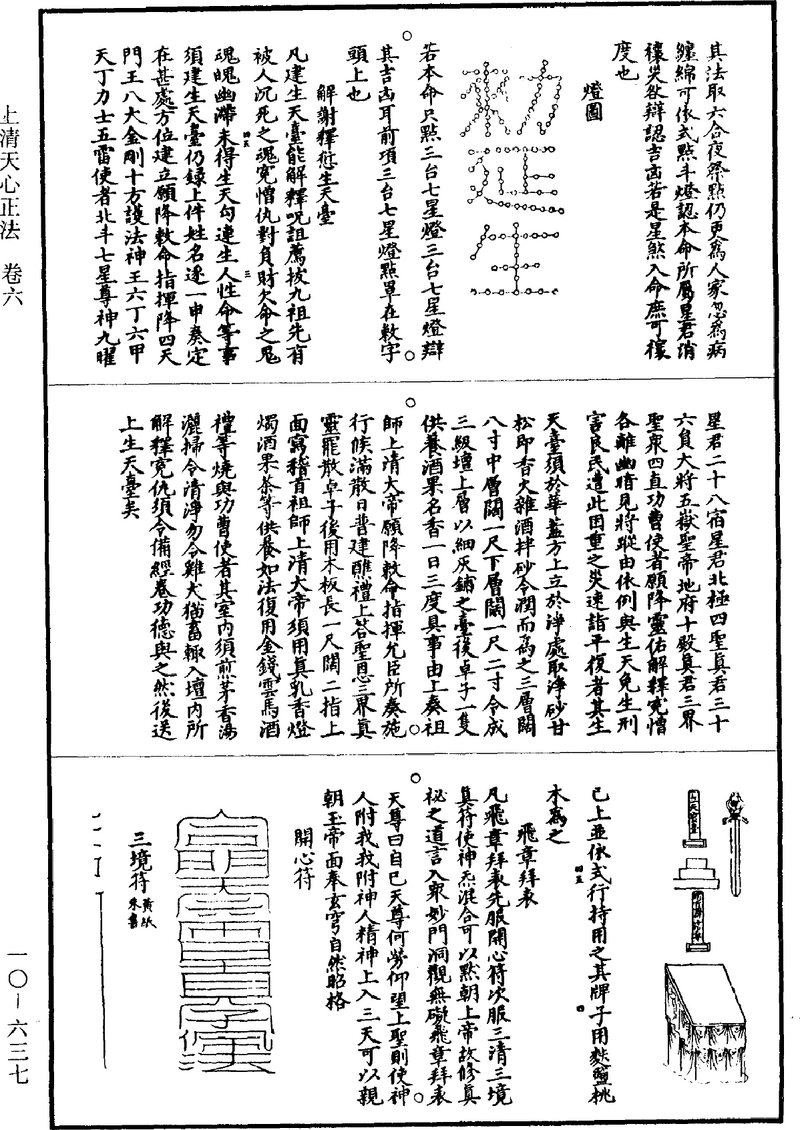 其法取六合夜祭點仍更爲人家忽爲病
纏綿可依式點斗燈認本命所屬星君消
禳災欲辯認吉凶若是星煞入命庶可禳
度也
燈圖
若本命只點三台七星燈三台七星燈辯
其吉凶耳前項三台七星燈點罩在敕字
頭上也
解謝釋愆生天臺
凡建生天臺能解釋呪詛薦拔九祖先有
被人沉死之魂寃憎仇對負財欠命之鬼
魂魄幽滯未得生天勾連生人性命等事
須建生天臺仍錄上件姓名逐一申奏定
在甚處方位建立願降敕命指揮降四天
門王八大金剛十方護法神王六丁六甲
天丁力士五雷使者北斗七星尊神九曜
星君二十八宿星君北極四聖眞君三十
六員大將五嶽聖帝地府十殿眞君三界
聖衆四直功曹使者願降靈佑解釋寃憎
各離幽暗見將蹤由依例與生天免生刑
害良民遭此困重之災速詣平復者其生
天臺須於華蓋方上立於淨處取淨砂甘
松印香火雜酒拌砂令潤而爲之三層闊
八寸中層闊一尺下層闊一尺二寸令成
三級壇上層以細灰鋪之臺後卓子一隻
供養酒果名香一日三度具事由上奏祖
師上清大帝願降敕命指揮允臣所奏施
行候滿散日普建醮禮上荅聖恩三界眞
靈罷散卓子後用木板長一尺闊二指上
面寫稽首祖師上清大帝須用眞乳香燈
燭酒果茶等供養如法復用金錢雲馬酒
禮等燒與功曹使者其室內須煎茅香湯
灑掃令清淨勿令雞犬猫畜輒入壇內所
解釋寃仇須令備經卷功德與之然後送
上生天臺矣
已上並依式行持用之其牌子用㱾䀋桃
木爲之
飛章拜表
凡飛章拜表先服開心符次服三清三境
眞符使神炁混合可以點朝上帝故修眞
祕之道言入衆妙門洞觀無礙飛章拜表
天尊曰自已天尊何勞仰望上聖則使神
人附我我附神人精神上入三天可以親
朝玉帝面奉玄穹自然昭格
開心符
三境符 黃紙朱書
上清天心正法 卷六
一〇-六三七